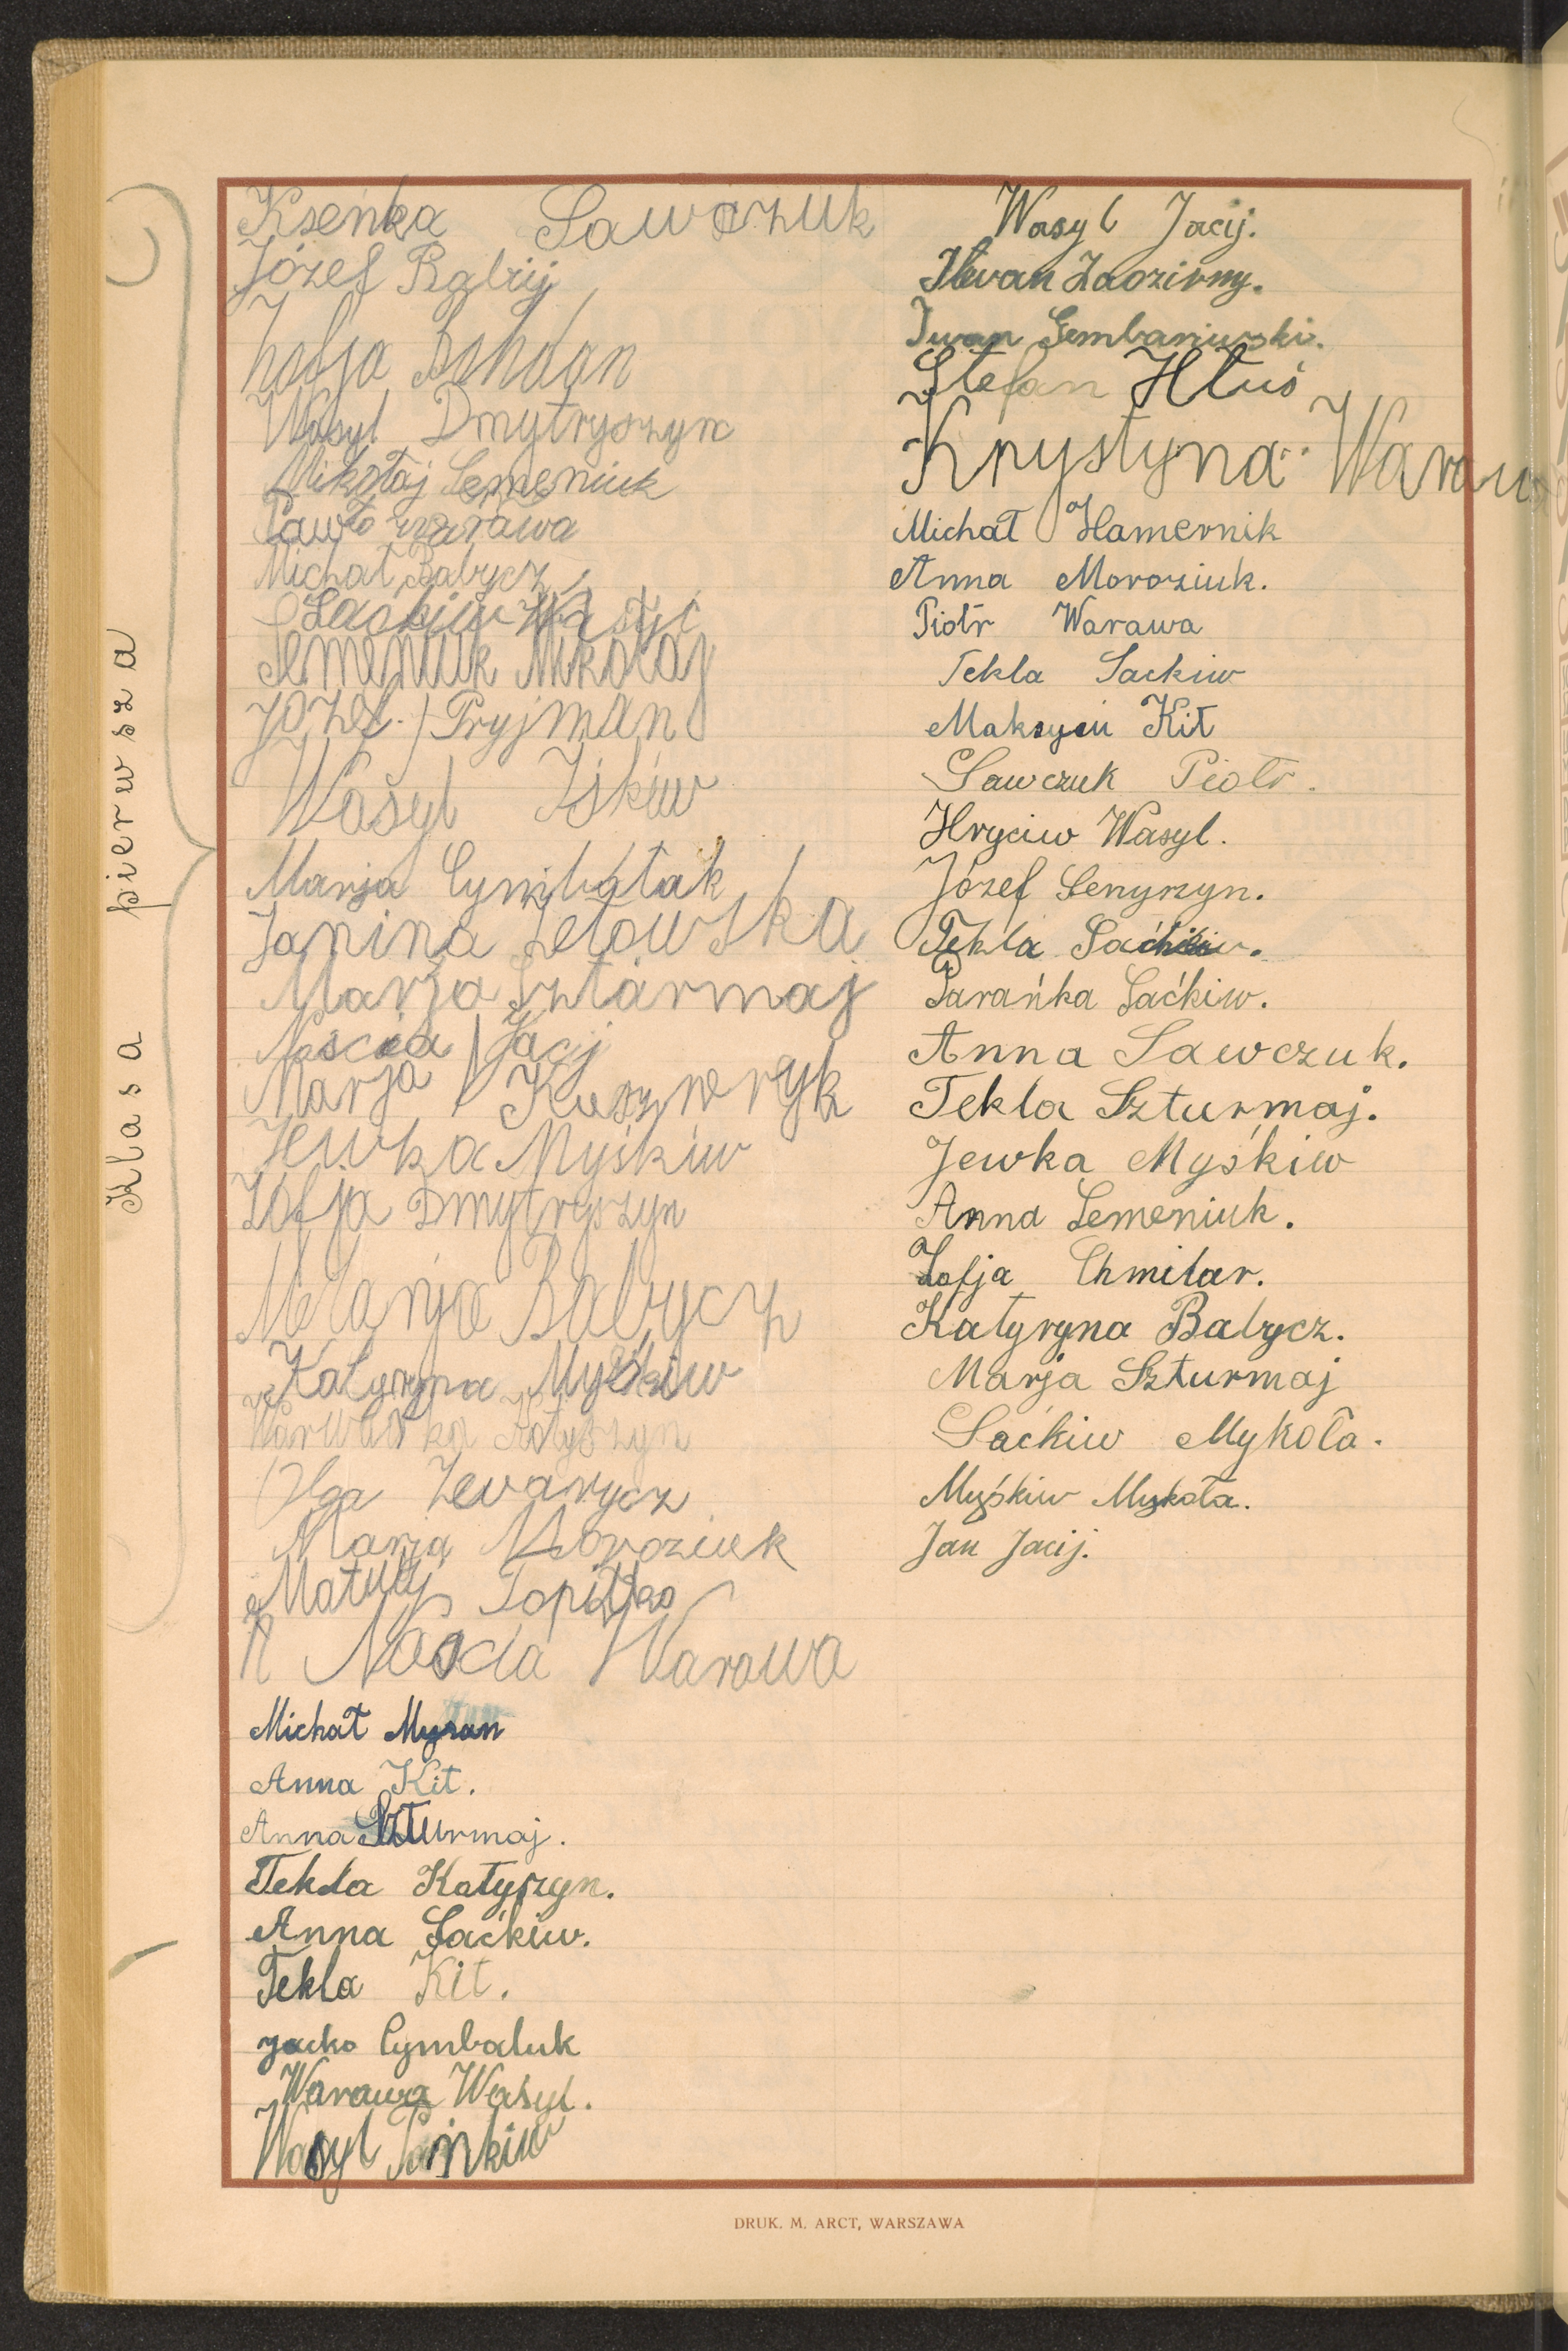 Klasa pierwsza
Ksenka Sawczuk
Józef Babij
Zofja Bohdan
Wasyl Dmytryszyn
Mikołaj Semeniuk
Pawło Warawa
Michał Babycz
Saćkiw Wasyl
Semeniuk Mikołaj
Józef Pryjman
Wasyl Iśkiw
Marja Cymbalak
Janina Letowska
Marja Szturmaj
Naścia Jacij
Marja Kuszneryk
Jewka Myśkiw
Zofja Dmytryszyn
Melanja Babycz
Katyryna Myśkiw
Warwarka Kotyszyn
Olga Zewarycz
Marja Moroziuk
Matwij
N Naścia Warawa
Michał Myzan
Anna Kit.
Anna Szturmaj.
Tekla Katyszyn.
Anna Saćkiw.
Tekla Kit.
Jacko Cymbaluk
Warawa Wasyl.
Wasyl Pańkiw
Wasyl Jacij.
Iwan Zadzirny.
Iwan Gembaniwski.
Stefan Hłuś
Krystyna Waraw
Michał Hamernik
Anna Moroziuk.
Piotr Warawa
Tekla Sackiw
Maksym Kit
Sawczuk Piotr.
Hryciw Wasyl.
Józef Senyszyn.
Tekla Saćkiw.
Parańka Saćkiw.
Anna Sawczuk.
Tekla Szturmaj.
Jewka Myśkiw
Anna Semeniuk.
Zofja Chmilar.
Katyryna Babycz.
Marja Szturmaj
Saćkiw Mykoła.
Myśkiw Mykoła.
Jan Jacij.
DRUK. M. ARCT, WARSZAWA